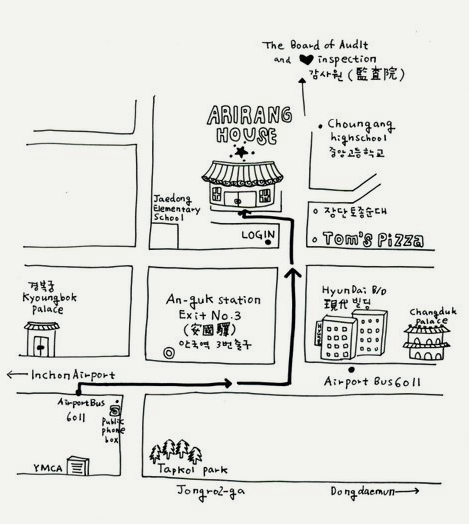 The Board of Audit
and inspection
감사원 (監査院)
ARIRANG
HOUSE
Choungang
highschool
중앙고등학교
Jaedong
Elementary
School
LOGIN
장단토종순대
Tom's Pizza
경복궁
Kyoungbok
palace
An-guk station
Exit No.3
(安國驛)
안국역 3번출구
HyunDai B/D
現代 빌딩
Changduk
palace
Inchon Airport
Airport Bus 6011
Airport Bus
6011
Public
phone
box
YMCA
Tapkol park
Jongro2-ga
Dongdaemun